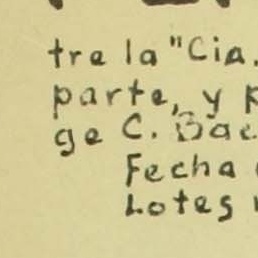 tre la "Cia.
parte, y
ge C.
Fecha
Lotes